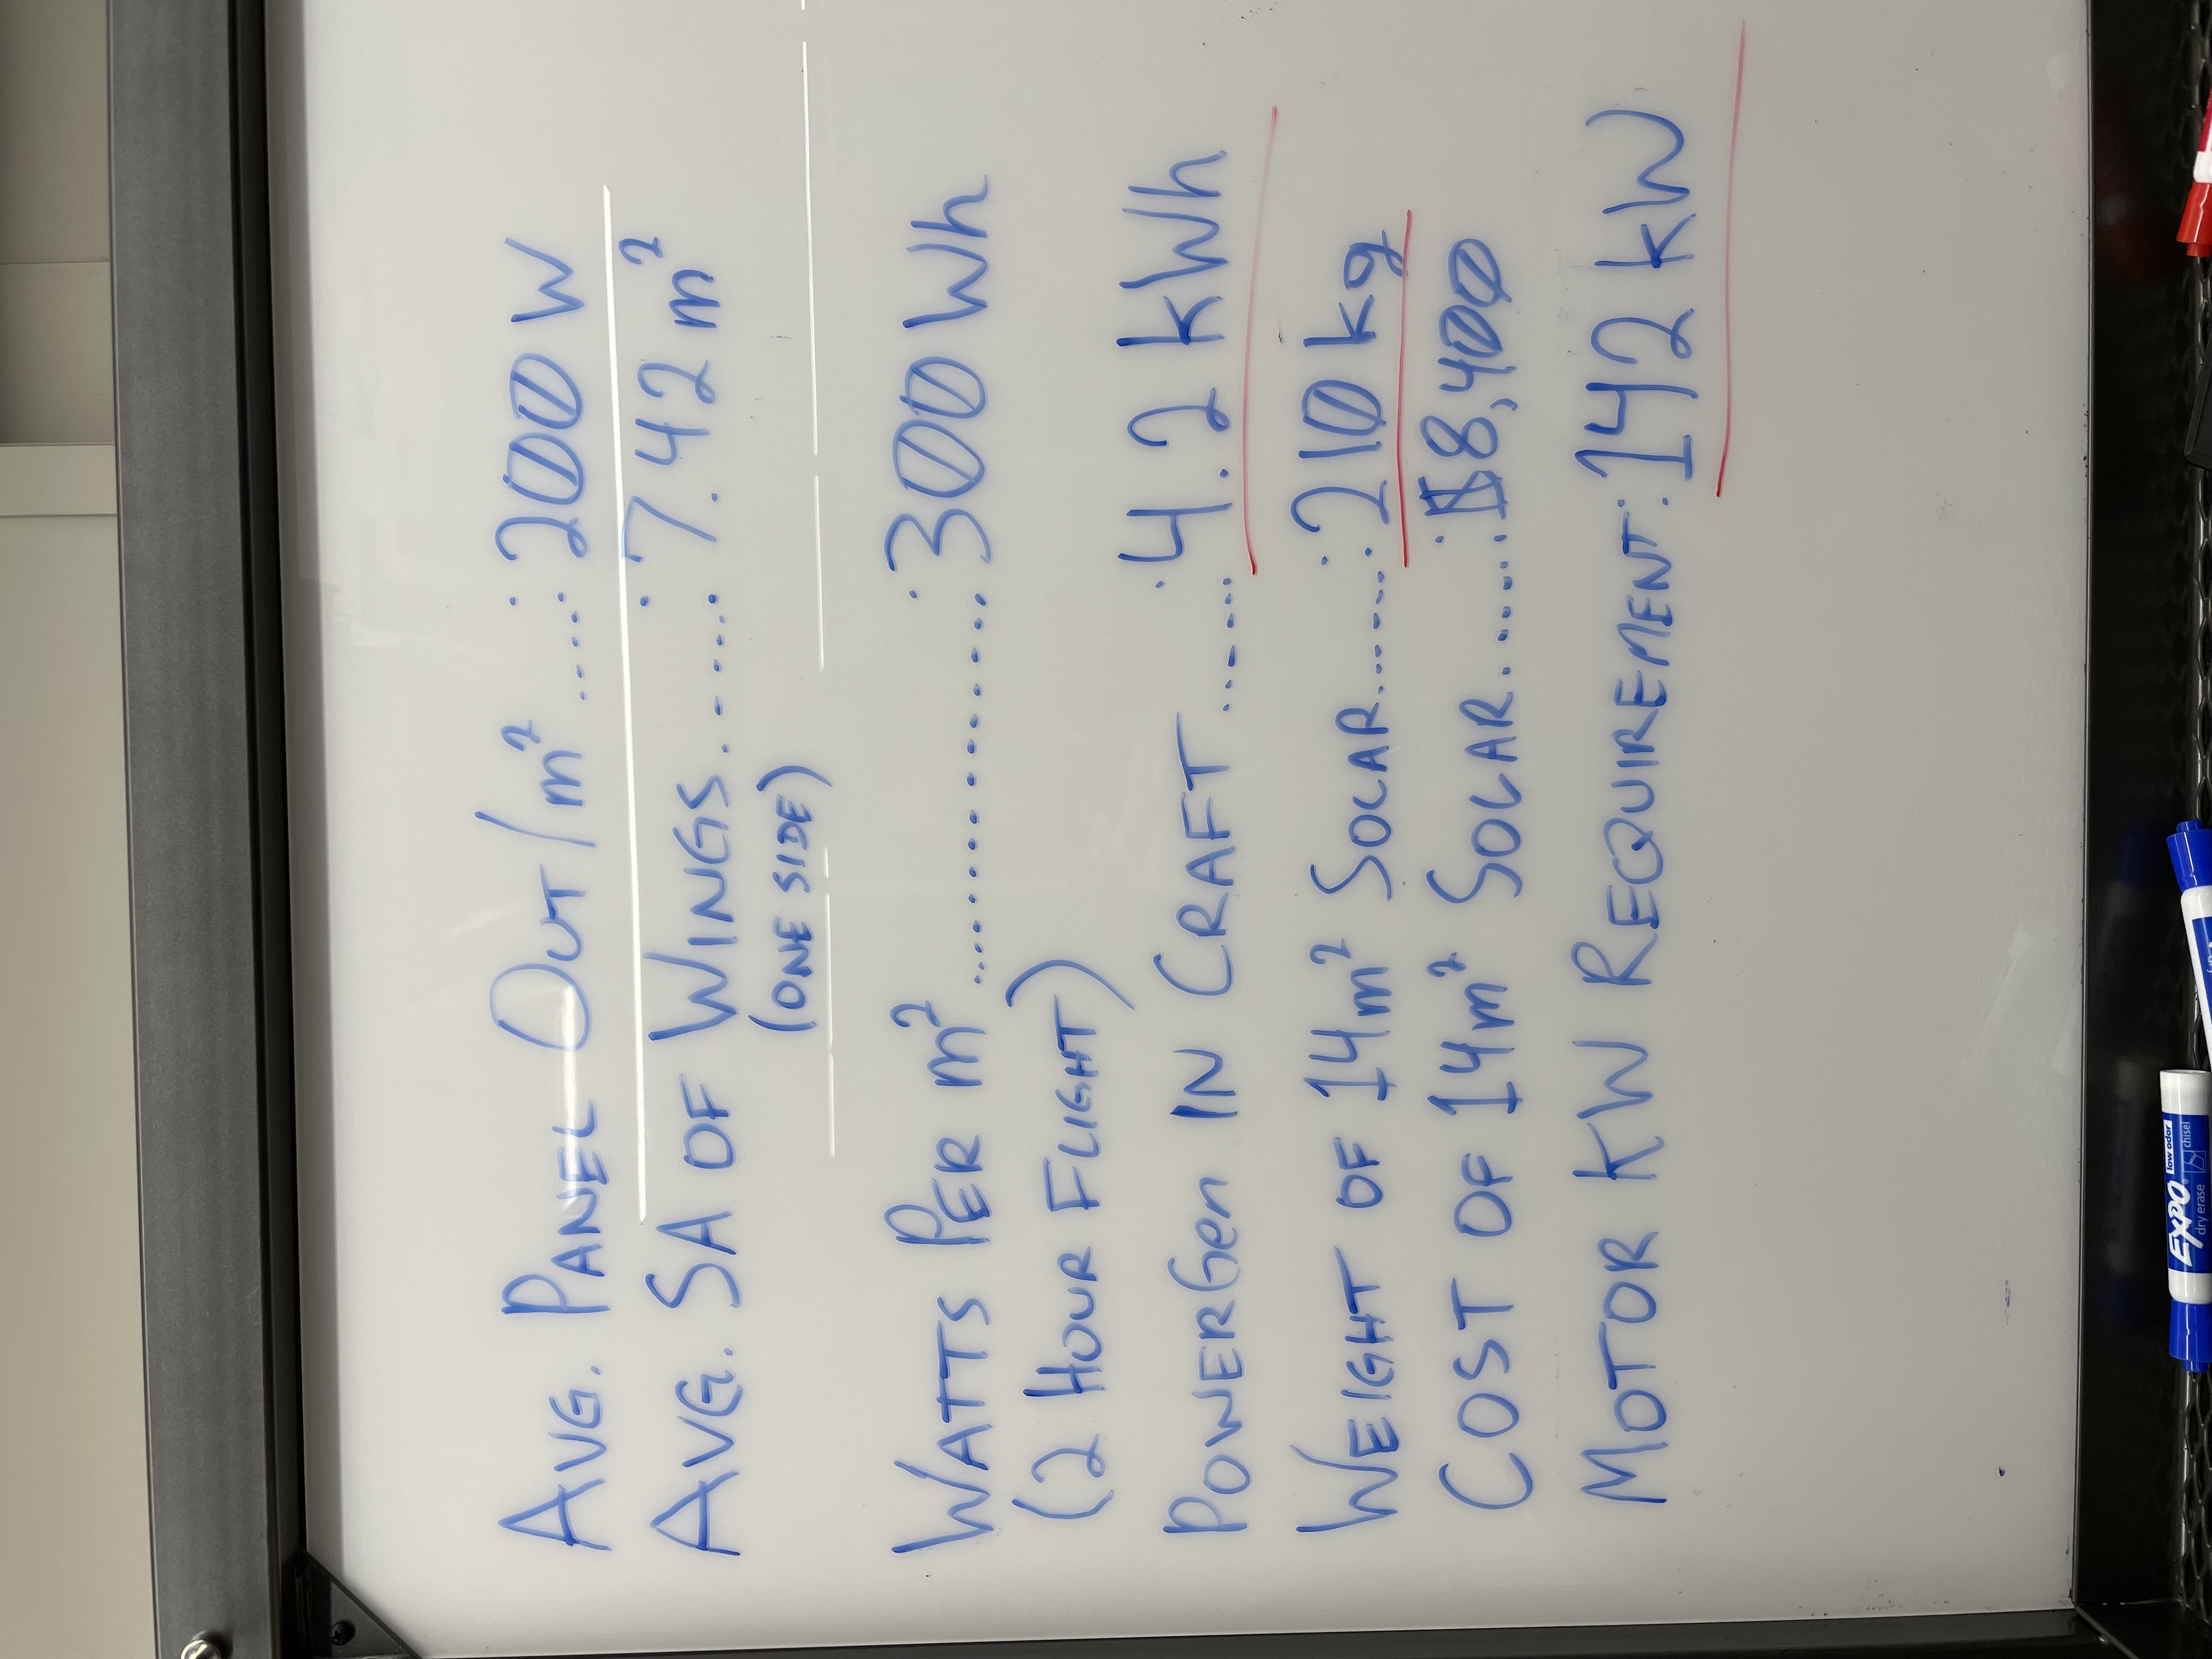 AVG. PANEL OUT/m².....: 200 W
AVG. SA OF WINGS.......: 7.42 m²
(ONE SIDE)
WATTS PER m²..............: 300 Wh
(2 HOUR FLIGHT)
POWERGen IN CRAFT.......: 4.2 kWh
WEIGHT OF 14m² SOLAR......: 210 kg
COST OF 14m² SOLAR.....: $8,400
MOTOR KW REQUIREMENT: 142 kW
EXPO
low odor
dry erase
chisel